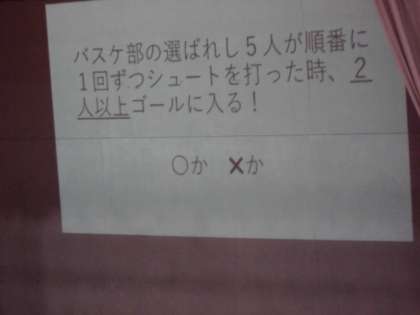 バスケ部の選ばれし5人が順番に
1回ずつシュートを打った時、2
人以上ゴールに入る！
○か ✖か